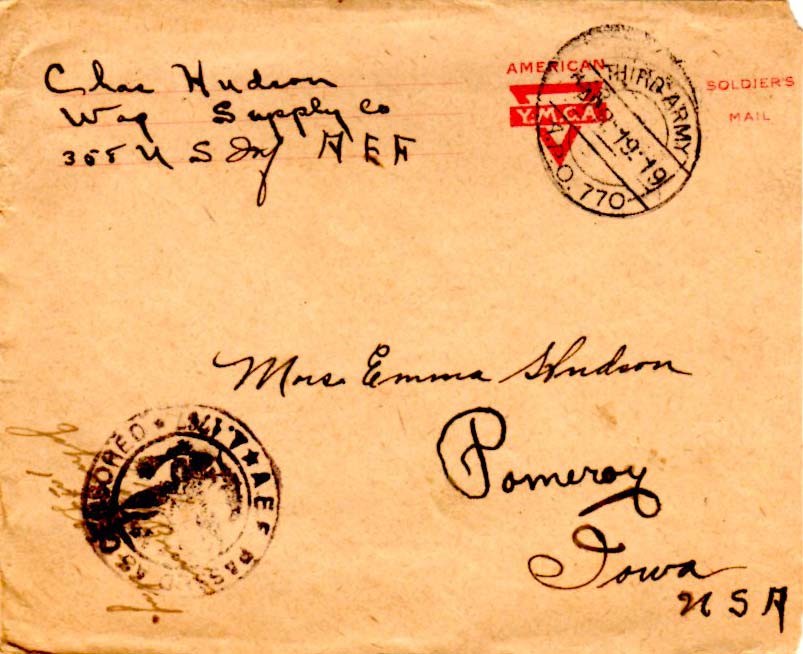 Chas Hudson
Wag Supply Co
355 U S Inf A E F
AMERICAN
Y.M.C.A.
SOLDIER'S
MAIL
THIRD ARMY
JAN 9 19:19
A.P.O. 770
Mrs. Emma Hudson
Pomeroy
Iowa
U S A
A.E.F. PASSED AS CENSORED